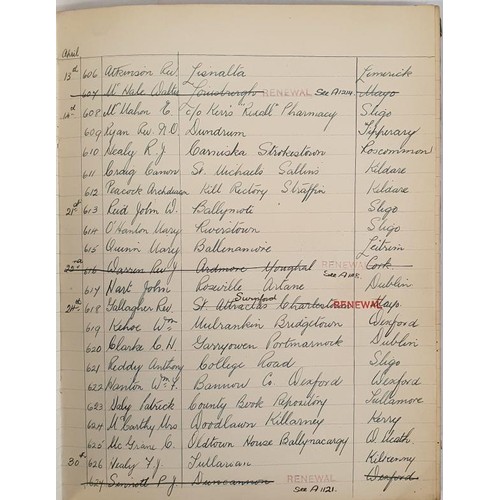 April
13th 606 Atkinson Rev. Lisnalta Limerick
607 Mc Hale Walter Louisburgh RENEWAL See A1214. Mayo
14th 608 Mc Mahon E. c/o Kerr's Rexall Pharmacy Sligo
609 Ryan Rev. Dundrum Tipperary
610 Healy P. J. Carniska Strokestown Roscommon
611 Craig Canon St. Michaels Sallins Kildare
612 Peacock Archdeacon Kill Rectory Straffin Kildare
21st 613 Reid John W. Ballymote Sligo
614 O'Hanlon Mary Riverstown Sligo
615 Quinn Mary Ballinamore Leitrim
22nd 616 Warren Rev. J Ardmore Youghal RENEWAL See Cork
617 Hart John Roseville Artane Dublin
24th 618 Gallagher Rev. St. Attractas Charlestown RENEWAL Mayo
619 Kehoe Wm Mulrankin Bridgetown Wexford
620 Clarke C. H. Garryowen Portmarnock Dublin
621 Reddy Anthony College Road Sligo
622 Hanton Wm F. Bannow Co. Wexford Wexford
623 Daly Patrick County Book Repository Tullamore
624 McCarthy Mrs Woodlawn Killarney Kerry
625 Mc Grane C. Oldtown House Ballynacargy W. Meath.
30th 626 Healy T. J. Tullaroan Kilkenny
627 Sinnott P. J. Duncannon RENEWAL See A1121. Wexford